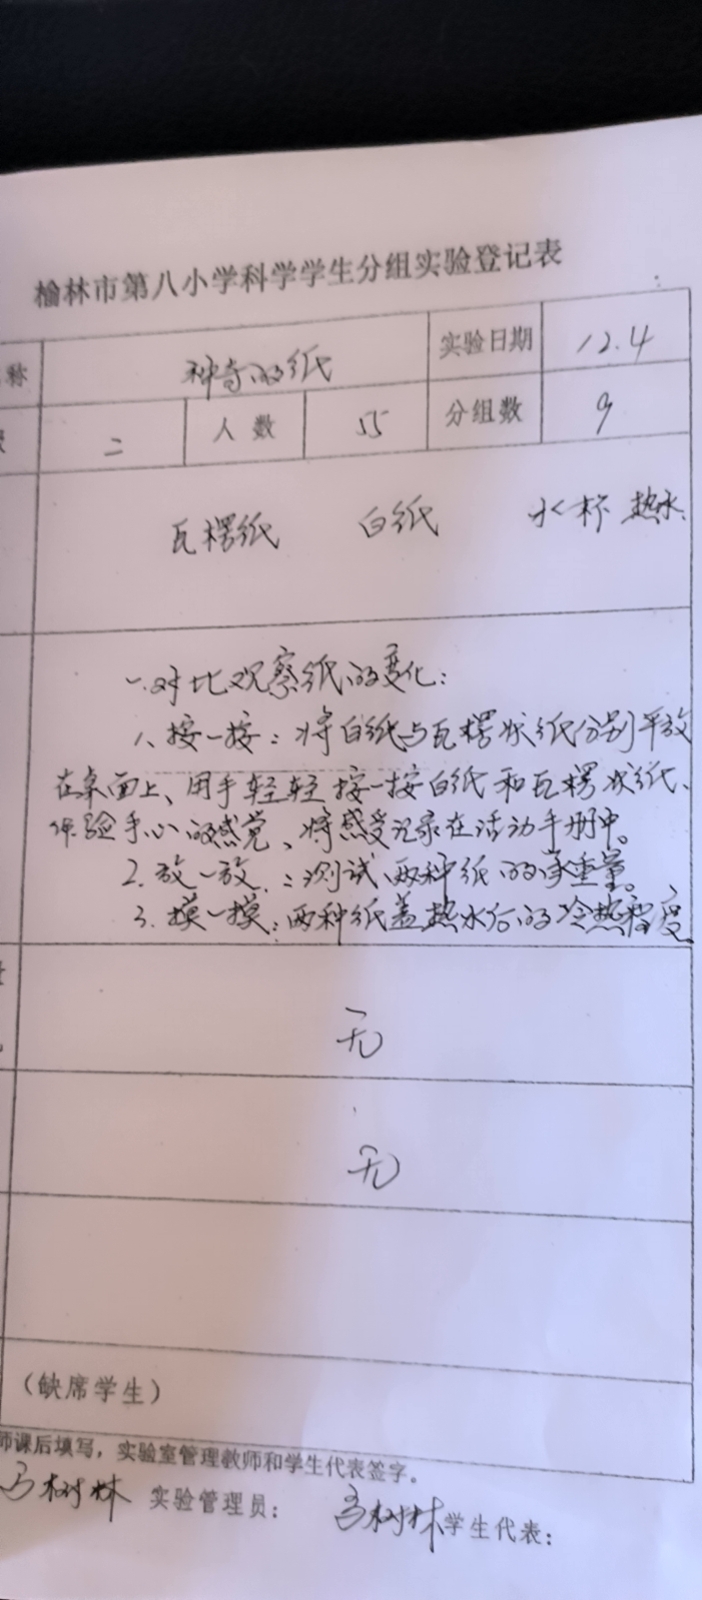 榆林市第八小学科学学生分组实验登记表
称 神奇的纸 实验日期 12.4
二 人数 55 分组数 9
瓦楞纸 白纸 水杯 热水
一.对比观察纸的变化:
1、按一按:将白纸与瓦楞状纸分别平放
在桌面上、用手轻轻按一按白纸和瓦楞状纸、
体验手心的感觉、将感受记录在活动手册中。
2.放一放:测试两种纸的承重量。
3.摸一摸:两种纸盖热水后的冷热程度
无
无
(缺席学生)
师课后填写,实验室管理教师和学生代表签字。
马树林 实验管理员: 马树林 学生代表: